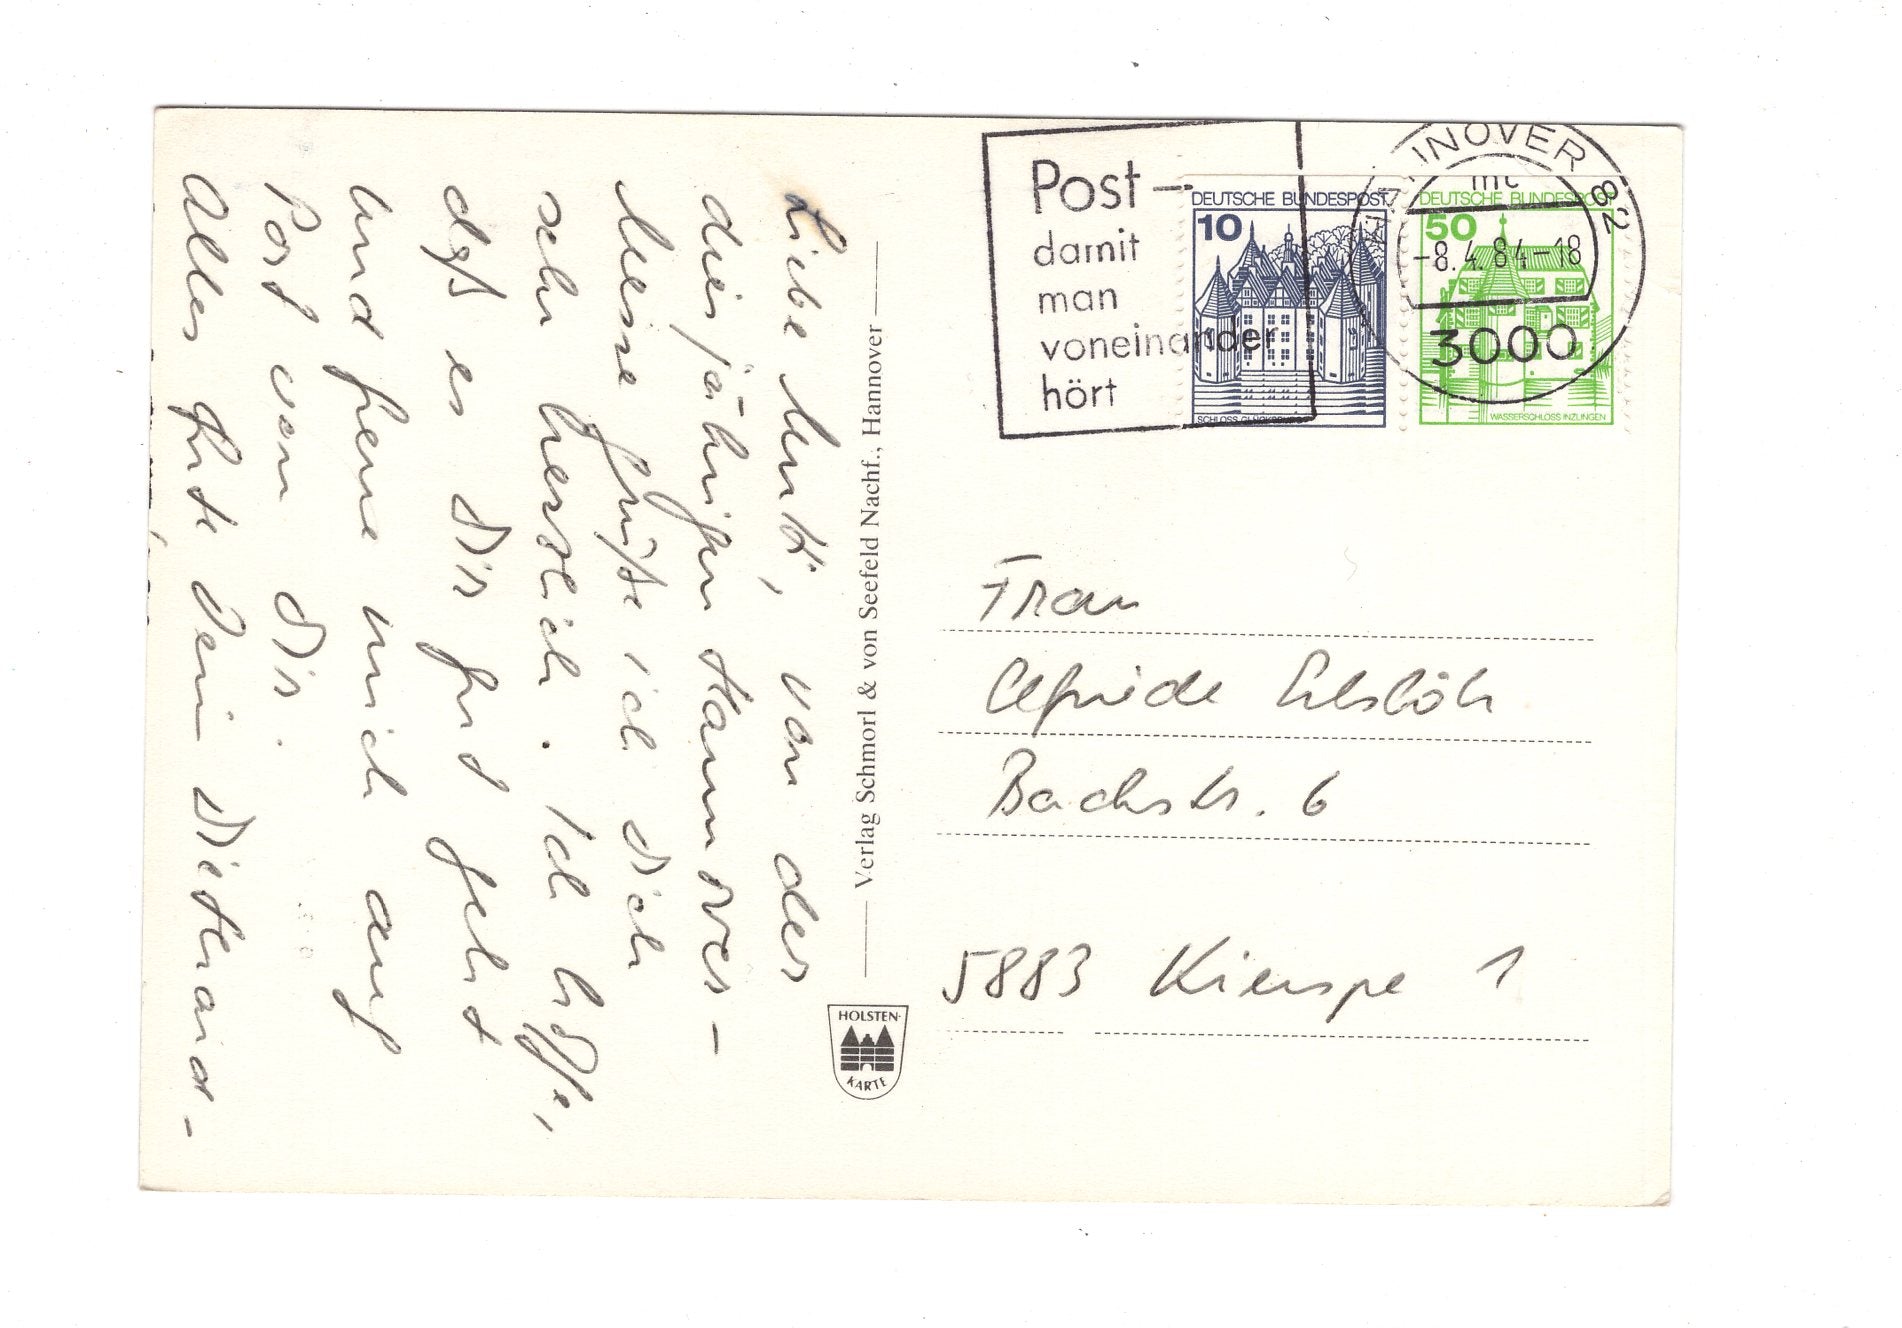 Liebe Mutti, von der
diesjährigen Hannover-
Messe grüße ich dich
sehr herzlich. Ich hoffe,
daß es Dir gut geht
und freue mich auf
Post von Dir.
Alles Gute Dein Diethard -
Verlag Schmorl & von Seefeld Nachf., Hannover
HOLSTEN-
KARTE
Post –
damit
man
voneinander
hört
DEUTSCHE BUNDESPOST
10
SCHLOSS GLÜCKSBURG
DEUTSCHE BUNDESPOST
50
WASSERSCHLOSS INZLINGEN
HANNOVER 82
mc
-8.4.84-18
3000
Frau
Elfriede
Bachstr. 6
5883 Kierspe 1